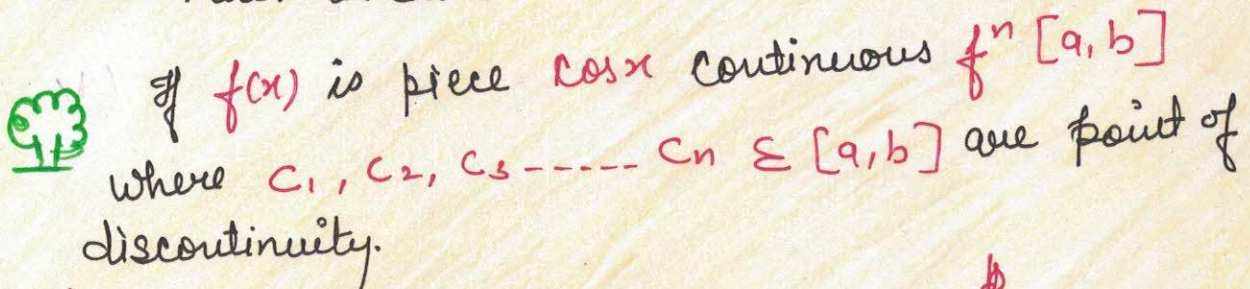 If f(x) is piece cosx continuous fⁿ [a, b]
where C₁, C₂, C₃ ------ Cn Ɛ [a, b] are point of
discontinuity.